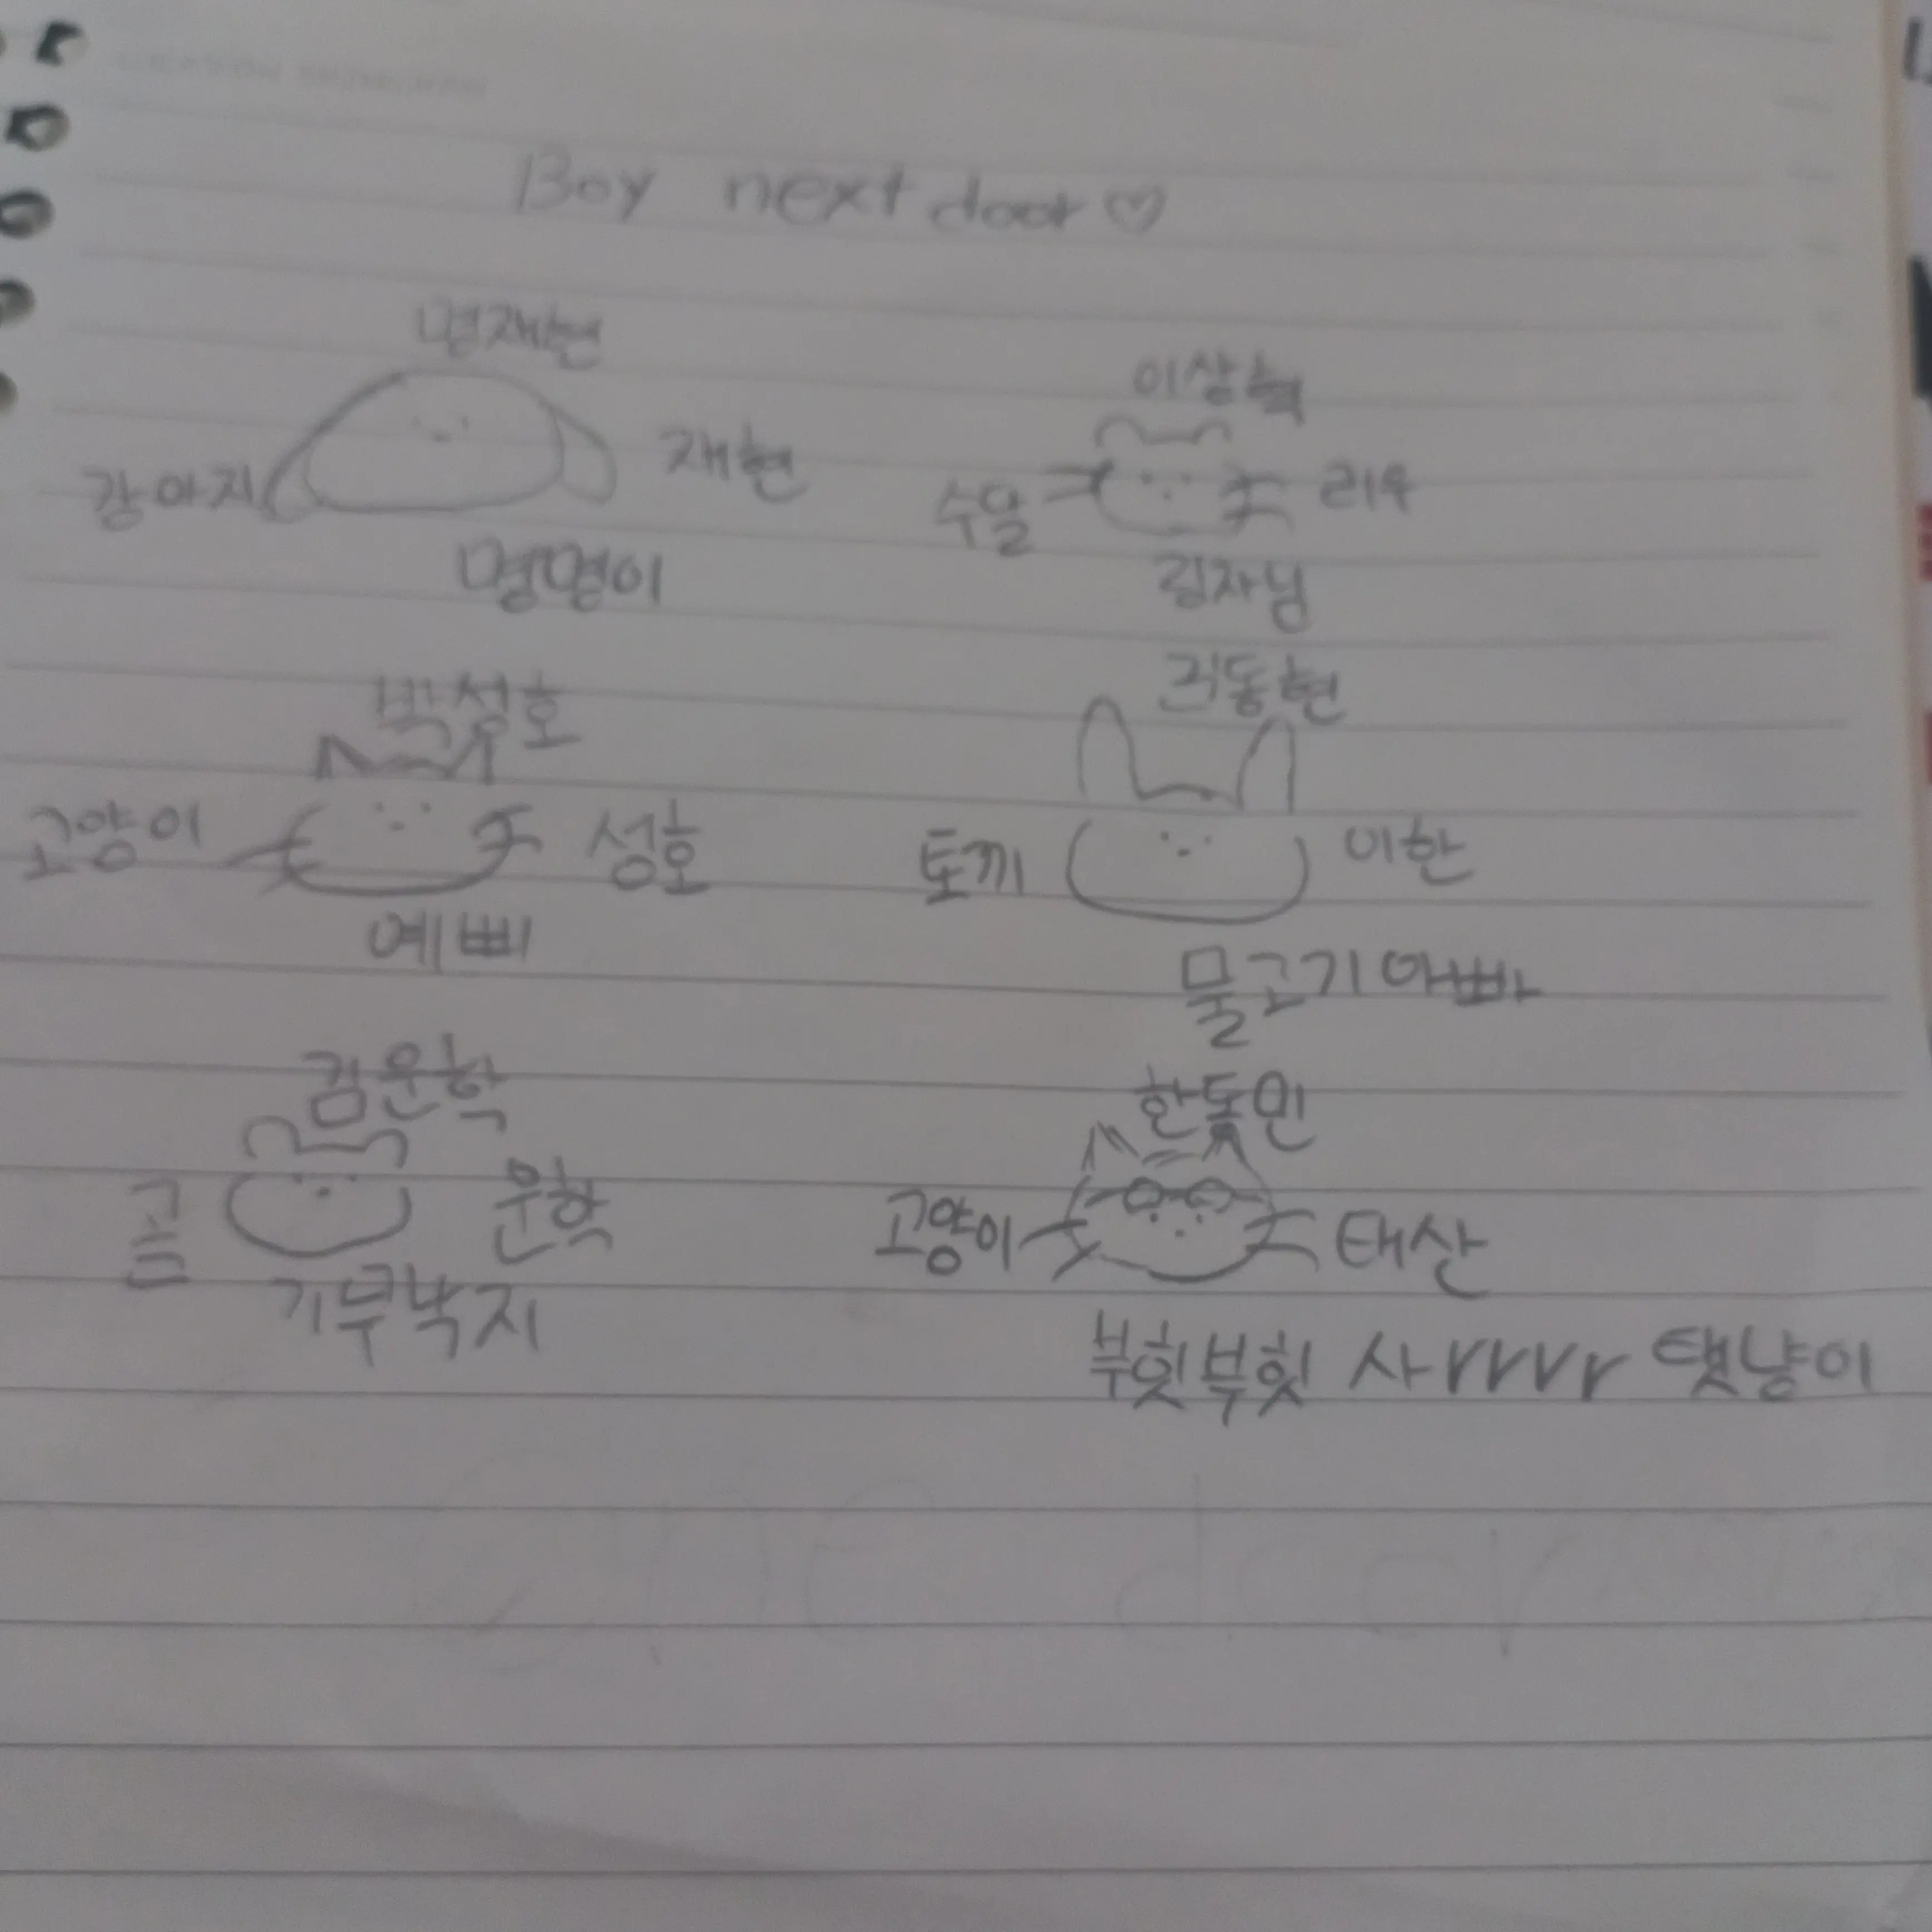 Boy next door♡
명재현
강아지 재현
명명이
이상혁
수달 리우
림자님
박성호
고양이 성호
예삐
김동현
토끼 이한
물고기아빠
김운학
곰 운학
기부낙지
한동민
고양이 태산
부힛부힛 사rrrr 탯냥이